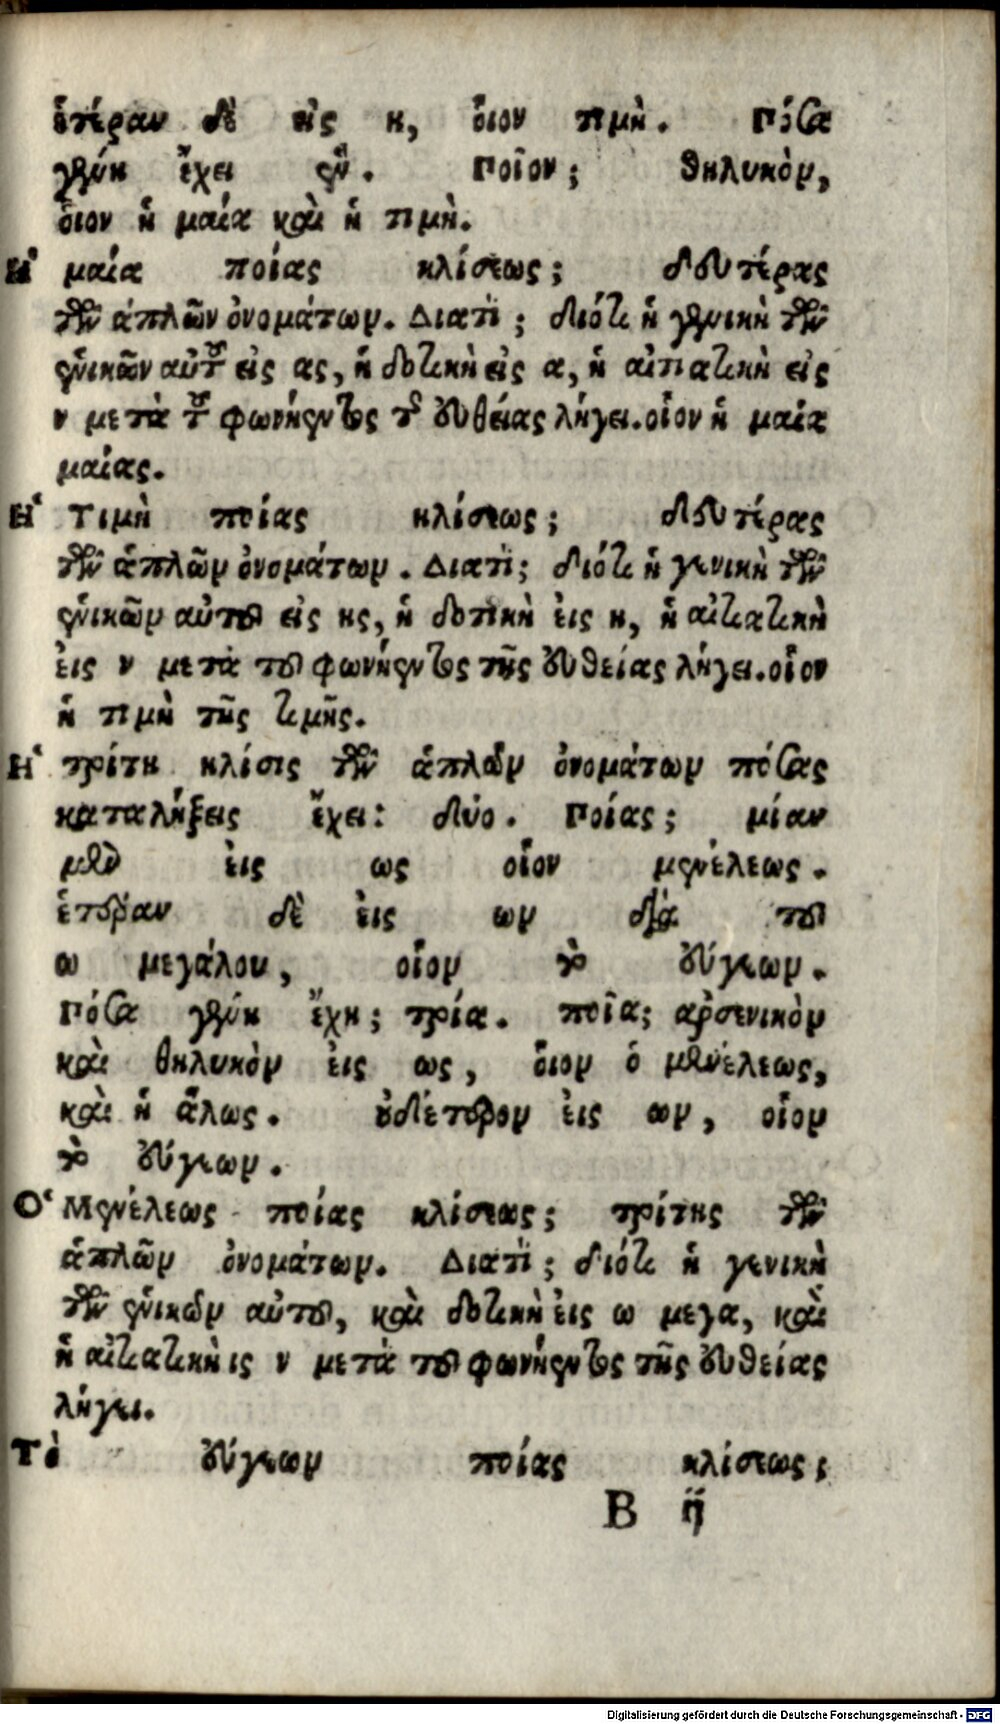 ἑτέραν δὲ εἰς η, ὅιον τιμὴ. Πόσα
γένη ἔχει ἕν. Ποῖον; θηλυκὸν,
ὅιον ἡ μαία καὶ ἡ τιμὴ.
Ἡ μαία ποίας κλίσεως; δευτέρας
τῶν ἁπλῶν ὀνομάτων. Διατὶ; διότι ἡ γενικὴ τῶν
ἑνικῶν αὐτοῦ εἰς ας, ἡ δοτικὴ εἰς α, ἡ αἰτιατικὴ εἰς
ν μετὰ τοῦ φωνήεντος τῆς εὐθείας λήγει. οἷον ἡ μαία
μαίας.
Ἡ Τιμὴ ποίας κλίσεως; δευτέρας
τῶν ἁπλῶν ὀνομάτων. Διατὶ; διότι ἡ γενικὴ τῶν
ἑνικῶν αὐτοῦ εἰς ης, ἡ δοτικὴ ἐις η, ἡ αἰτιατικὴ
ἐις ν μετὰ τοῦ φωνήεντος τῆς εὐθείας λήγει. οἷον
ἡ τιμὴ τῆς τιμῆς.
Ἡ τρίτη κλίσις τῶν ἁπλῶν ὀνομάτων πόσας
καταλήξεις ἔχει: δύο. Ποίας; μίαν
μὲν ἐις ως οἷον μενέλεως.
ἑτέραν δὲ ἐις ων διὰ τοῦ
ω μεγάλου, οἷον τὸ εὔγεων.
Πόσα γένη ἔχη; τρία. ποῖα; ἀρσενικὸν
καὶ θηλυκὸν ἐις ως, ὅιον ὁ μενέλεως,
καὶ ἡ ἅλως. οὐδέτερον ἐις ων, οἷον
τὸ εὔγεων.
Ὁ Μενέλεως ποίας κλίσεως; τρίτης τῶν
ἁπλῶν ὀνομάτων. Διατὶ; διότι ἡ γενικὴ
τῶν ἑνικῶν αὐτοῦ, καὶ δοτικὴ ἐις ω μεγα, καὶ
ἡ αἰτιατικὴ ις ν μετὰ τοῦ φωνήεντος τῆς εὐθείας
λήγει.
Τὸ εὔγεων ποίας κλίσεως;
B ij
Digitalisierung gefördert durch die Deutsche Forschungsgemeinschaft - DFG